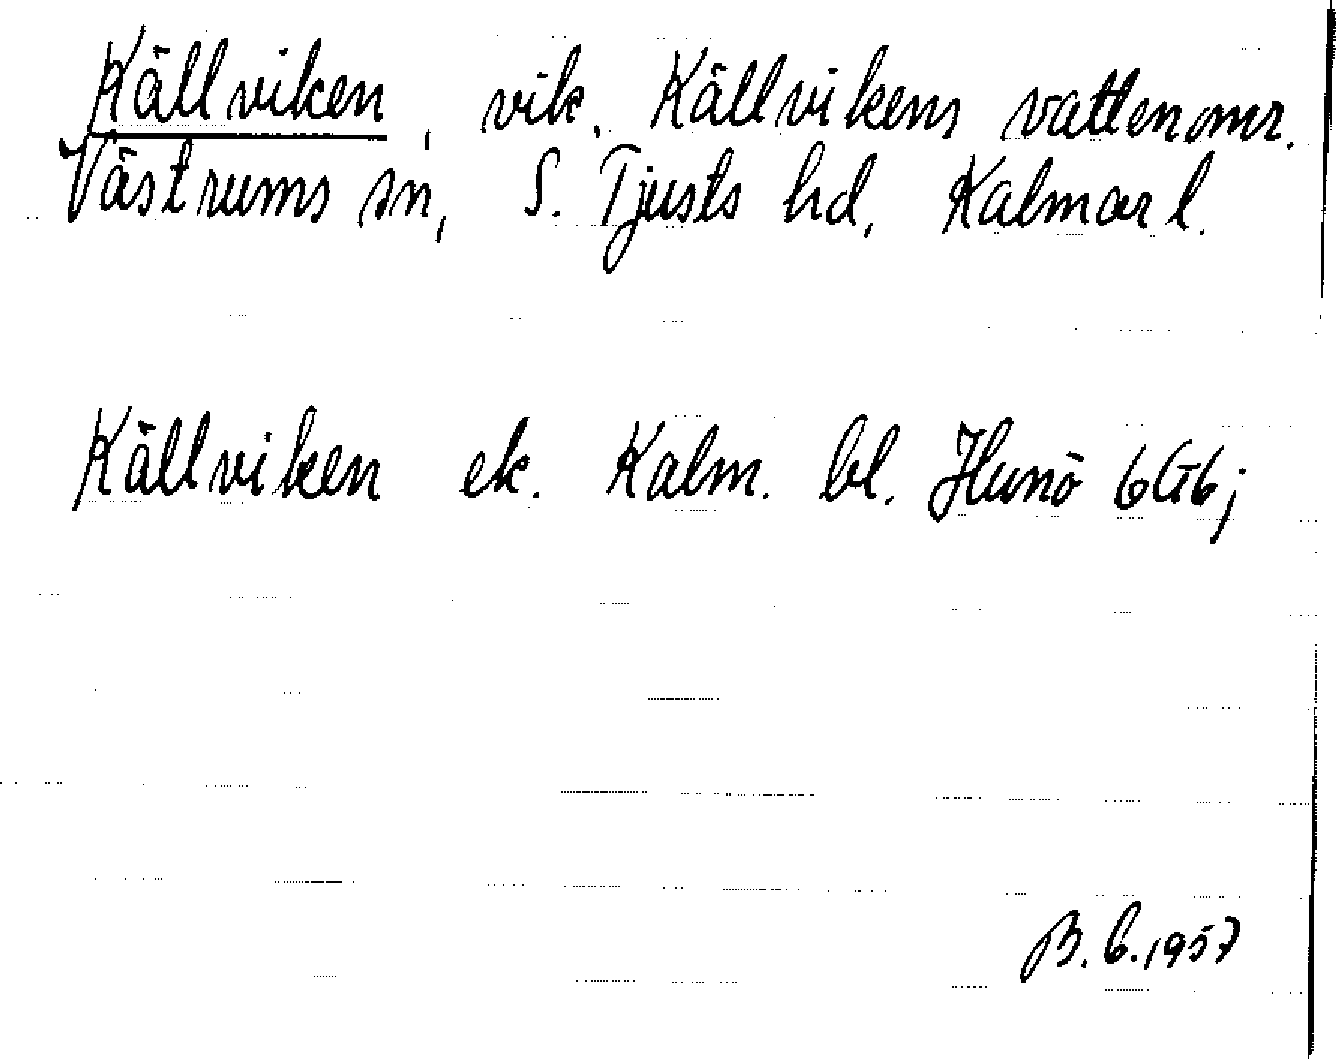 Källviken, vik. Källvikens vattenomr.
Västrums sn, S. Tjusts hd, Kalmar l.
Källviken ek. Kalm. bl. Hunö 6G6;
B. 6. 1957